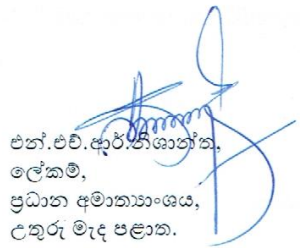 එන්.එච්.ආර්.නිශාන්ත,
ලේකම්,
ප්‍රධාන අමාත්‍යාංශය,
උතුරු මැද පළාත.